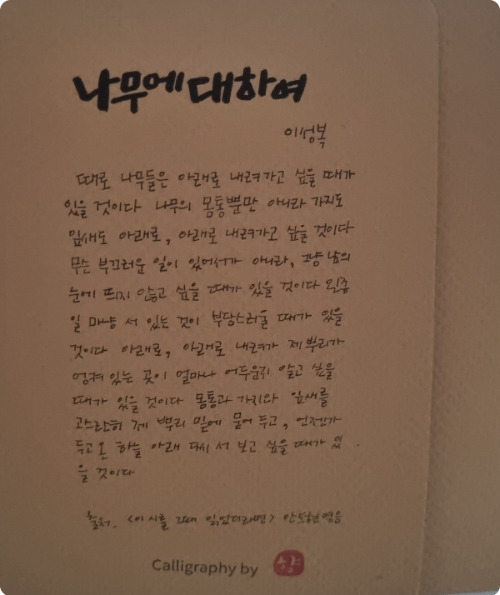 나무에 대하여
이성복
때로 나무들은 아래로 내려가고 싶을 때가
있을 것이다 나무의 몸통뿐만 아니라 가지도
잎새도 아래로, 아래로 내려가고 싶을 것이다
무슨 부끄러운 일이 있어서가 아니라, 그냥 남의
눈에 뜨지 않고 싶을 때가 있을 것이다 왼종
일 마냥 서 있는 것이 부담스러울 때가 있을
것이다 아래로, 아래로 내려가 제 뿌리가
엉켜 있는 곳이 얼마나 어두운지 알고 싶을
때가 있을 것이다 몸통과 가지와 잎새를
고스란히 제 뿌리 밑에 묻어 두고, 언젠가
두고 온 하늘 아래 다시 서 보고 싶을 때가 있
을 것이다
출처. <이 시를 그때 읽었더라면> 안도현 엮음
Calligraphy by